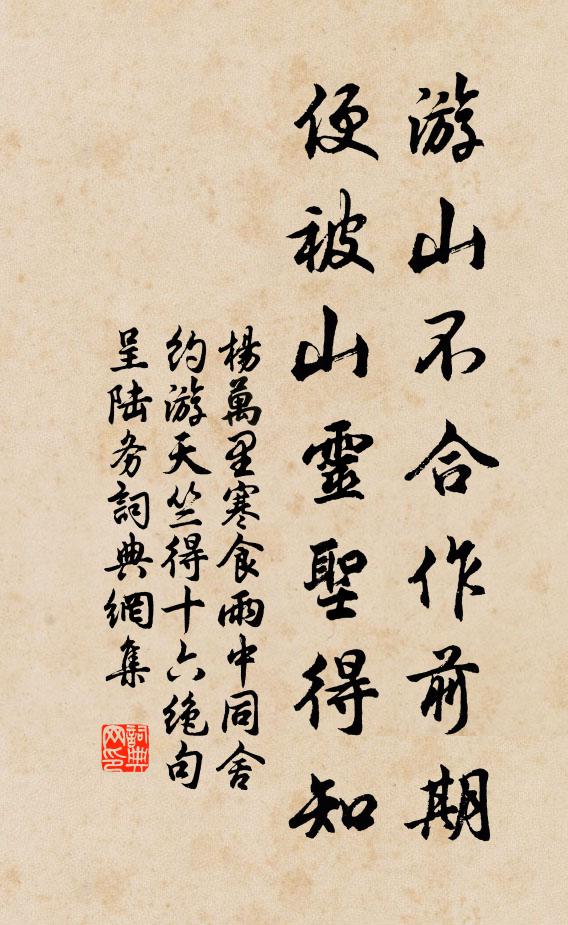 游山不合作前期
便被山靈聖得知
楊萬里寒食雨中同舍
約游天竺得十六绝句
呈陆务詞典網集
詞典
网印